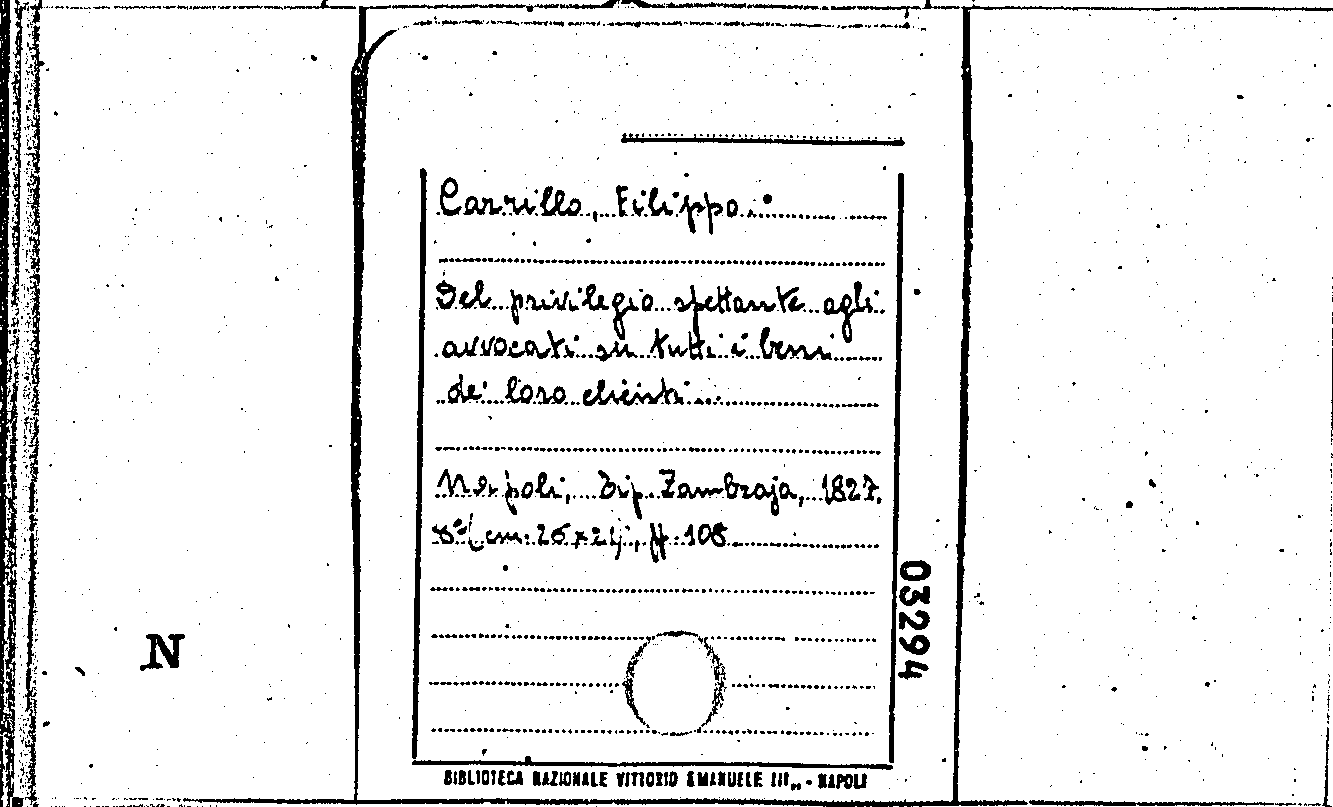 Carrillo, Filippo.
Del privilegio spettante agli
avvocati su tutti i beni
de' loro clienti...
Napoli, Tip. Zambraja, 1827.
8° (cm. 26×21), ff. 108
03294
N
BIBLIOTECA NAZIONALE VITTORIO EMANUELE III„ - NAPOLI